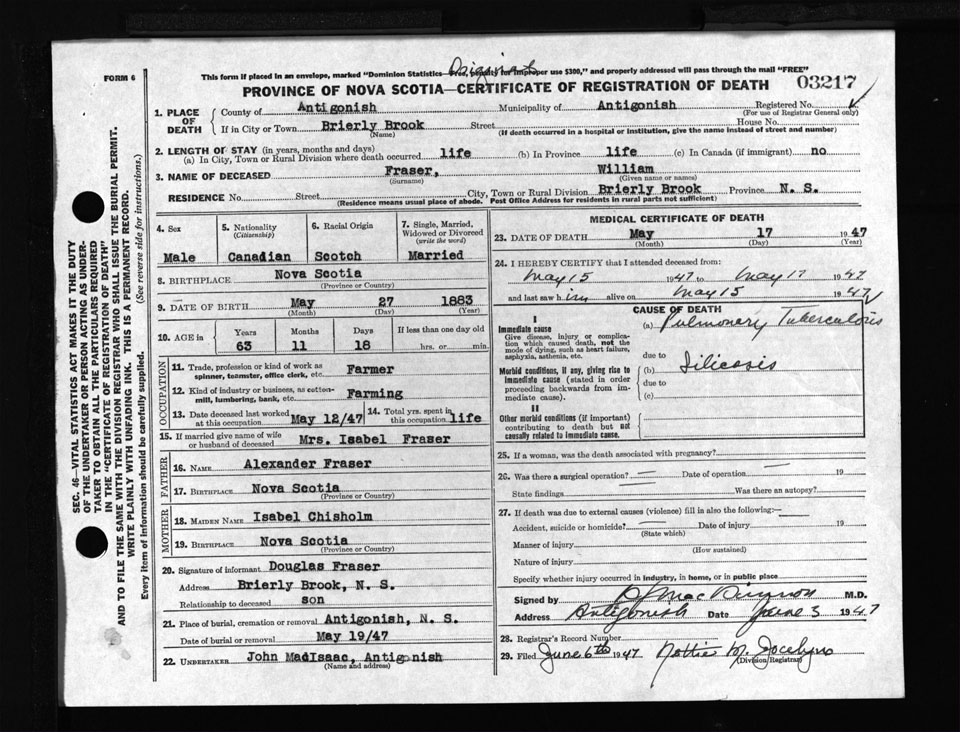 Original
FORM 6
This form if placed in an envelope, marked "Dominion Statistics—Free, penalty for improper use $300," and properly addressed will pass through the mail "FREE"
PROVINCE OF NOVA SCOTIA—CERTIFICATE OF REGISTRATION OF DEATH 03217
1. PLACE OF DEATH County of Antigonish Municipality of Antigonish Registered No.
(For use of Registrar General only)
If in City or Town Brierly Brook Street House No.
(Name) (If death occurred in a hospital or institution, give the name instead of street and number)
2. LENGTH OF STAY (in years, months and days)
(a) In City, Town or Rural Division where death occurred life (b) In Province life (c) In Canada (if immigrant) no
3. NAME OF DECEASED Fraser, William
(Surname) (Given name or names)
RESIDENCE No. Street City, Town or Rural Division Brierly Brook Province N. S.
(Residence means usual place of abode. Post Office Address for residents in rural parts not sufficient)
4. Sex 5. Nationality (Citizenship) 6. Racial Origin 7. Single, Married, Widowed or Divorced (write the word)
Male Canadian Scotch Married
8. BIRTHPLACE Nova Scotia
(Province or Country)
9. DATE OF BIRTH May 27 1883
(Month) (Day) (Year)
10. AGE in Years Months Days If less than one day old
63 11 18 hrs. or min.
OCCUPATION
11. Trade, profession or kind of work as spinner, teamster, office clerk, etc. Farmer
12. Kind of industry or business, as cotton-mill, lumbering, bank, etc. Farming
13. Date deceased last worked at this occupation May 12/47 14. Total yrs. spent in this occupation life
15. If married give name of wife or husband of deceased Mrs. Isabel Fraser
FATHER
16. NAME Alexander Fraser
17. BIRTHPLACE Nova Scotia
(Province or Country)
MOTHER
18. MAIDEN NAME Isabel Chisholm
19. BIRTHPLACE Nova Scotia
(Province or Country)
20. Signature of informant Douglas Fraser
Address Brierly Brook, N. S.
Relationship to deceased son
21. Place of burial, cremation or removal Antigonish, N. S.
Date of burial or removal May 19/47
22. UNDERTAKER John MacIsaac, Antigonish
(Name and address)
MEDICAL CERTIFICATE OF DEATH
23. DATE OF DEATH May 17 1947
(Month) (Day) (Year)
24. I HEREBY CERTIFY that I attended deceased from:
May 15 1947 to May 17 1947
and last saw him alive on May 15 1947
CAUSE OF DEATH
I
Immediate cause (a) Pulmonary Tuberculosis
Give disease, injury or complication which caused death, not the mode of dying, such as heart failure, asphyxia, asthenia, etc.
due to
Morbid conditions, if any, giving rise to immediate cause (stated in order proceeding backwards from immediate cause). (b) Silicosis
due to
(c)
II
Other morbid conditions (if important) contributing to death but not causally related to immediate cause.
25. If a woman, was the death associated with pregnancy?
26. Was there a surgical operation? Date of operation 19
State findings Was there an autopsy?
27. If death was due to external causes (violence) fill in also the following:—
Accident, suicide or homicide? Date of injury 19
(State which)
Manner of injury
(How sustained)
Nature of injury
Specify whether injury occurred in industry, in home, or in public place
Signed by M.D.
Address Antigonish Date June 3 1947
28. Registrar's Record Number
29. Filed June 6th 1947 Nottie M. Jocelyn
(Division Registrar)
SEC. 46—VITAL STATISTICS ACT MAKES IT THE DUTY
OF THE UNDERTAKER OR PERSON ACTING AS UNDER-
TAKER TO OBTAIN ALL THE PARTICULARS REQUIRED
IN THE "CERTIFICATE OF REGISTRATION OF DEATH"
AND TO FILE THE SAME WITH THE DIVISION REGISTRAR WHO SHALL ISSUE THE BURIAL PERMIT.
WRITE PLAINLY WITH UNFADING INK. THIS IS A PERMANENT RECORD.
Every item of information should be carefully supplied. (See reverse side for instructions.)